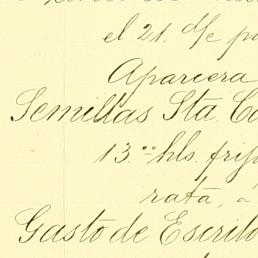 el 21. de pa
Aparcera
Semillas Sta. Ca
13.oo hls. frij
rata, a
Gasto de Escrito